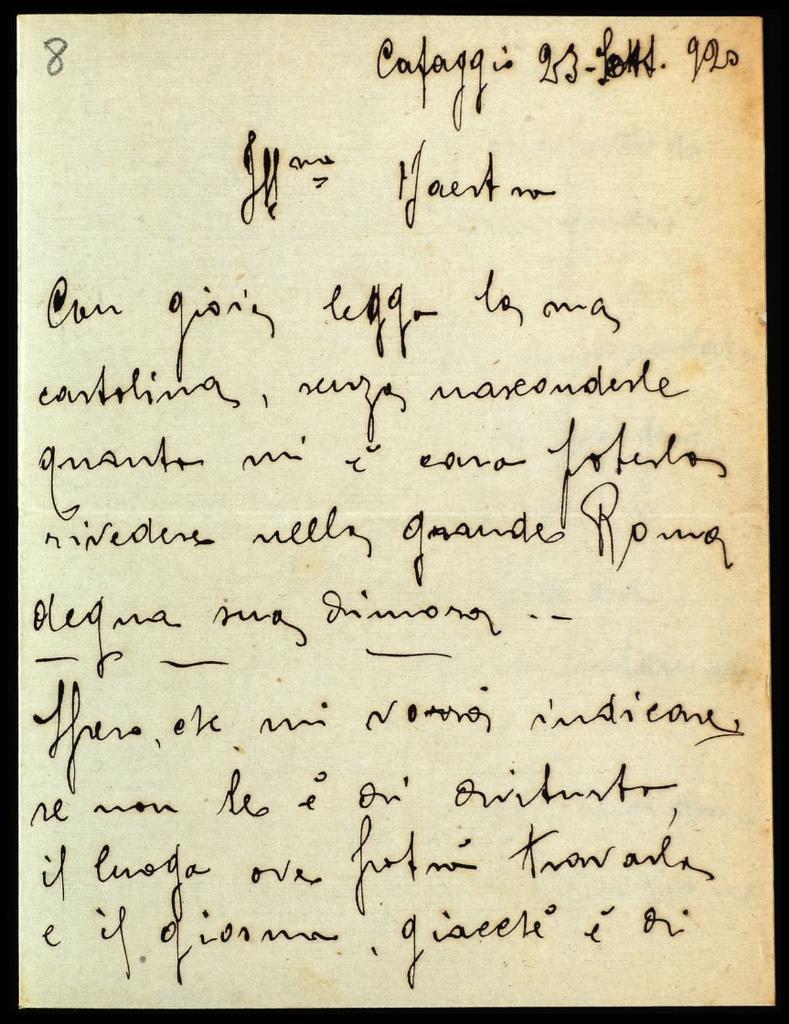 8
Cafaggio 23-Sett. 920
Ill.mo Maestro
Con gioia leggo la sua
cartolina, senza nasconderle
quanto mi è caro poterla
rivedere nella grande Roma
degna sua dimora --
Spero, che mi vorrà indicare,
se non le è di disturbo,
il luogo ove potrò trovarla
e il giorno, giacchè è di